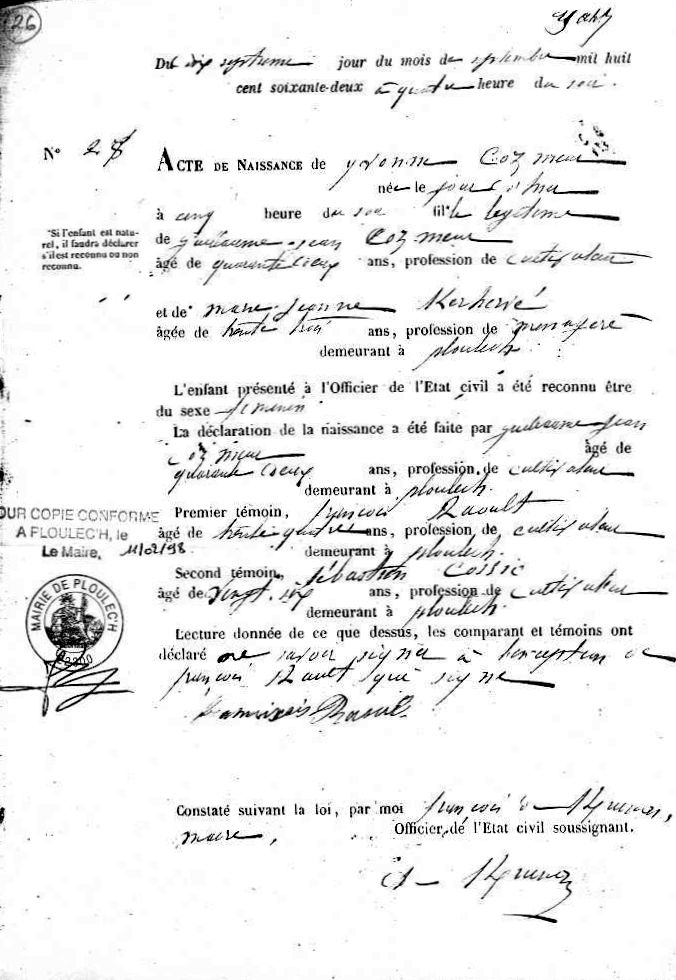 26
Du dix septieme jour du mois de septembre mil huit
cent soixante-deux à quatre heure du soir.
N° 28
ACTE DE NAISSANCE de yvonne Coz meur
née le jour d'hui
à cinq heure du soir fille legitime
*Si l'enfant est natu-
rel, il faudra déclarer
s'il est reconnu ou non
reconnu.
de guillaume jean Coz meur
âgé de quarante deux ans, profession de cultivateur
et de marie jeanne Kerhervé
âgée de trente trois ans, profession de menagere
demeurant à ploulech
L'enfant présenté à l'Officier de l'Etat civil a été reconnu être
du sexe feminin
La déclaration de la naissance a été faite par guillaume jean
coz meur âgé de
quarante deux ans, profession de cultivateur
demeurant à ploulech.
Premier témoin, françois Raoult
âgé de trente quatre ans, profession de cultivateur
demeurant à ploulech.
Second témoin, sébastien Cossic
âgé de vingt six ans, profession de cultivateur
demeurant à ploulech
POUR COPIE CONFORME
A PLOULEC'H, le
Le Maire, 11/02/98
MAIRIE DE PLOULEC'H
22300
Lecture donnée de ce que dessus, les comparant et témoins ont
déclaré ne savoir signer à l'exception de
françois Raoult qui signe
Raoul
Constaté suivant la loi, par moi françois
maire, Officier de l'Etat civil soussignant.